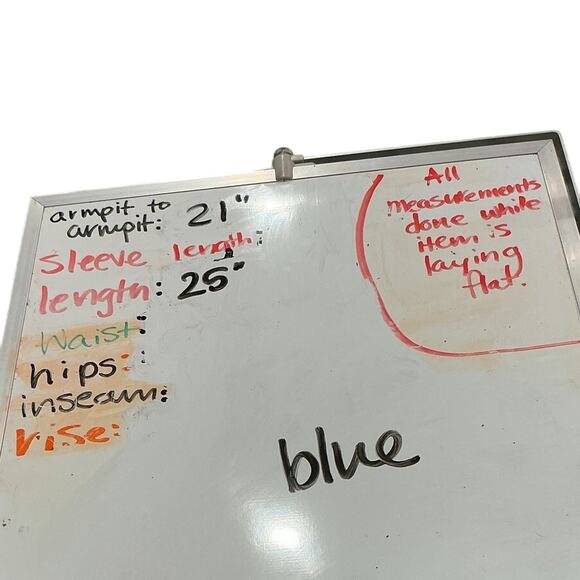 armpit to
armpit: 21"
sleeve length:
length: 25"
Waist:
hips:
inseam:
rise:
All
measurements
done while
item is
laying
flat.
blue